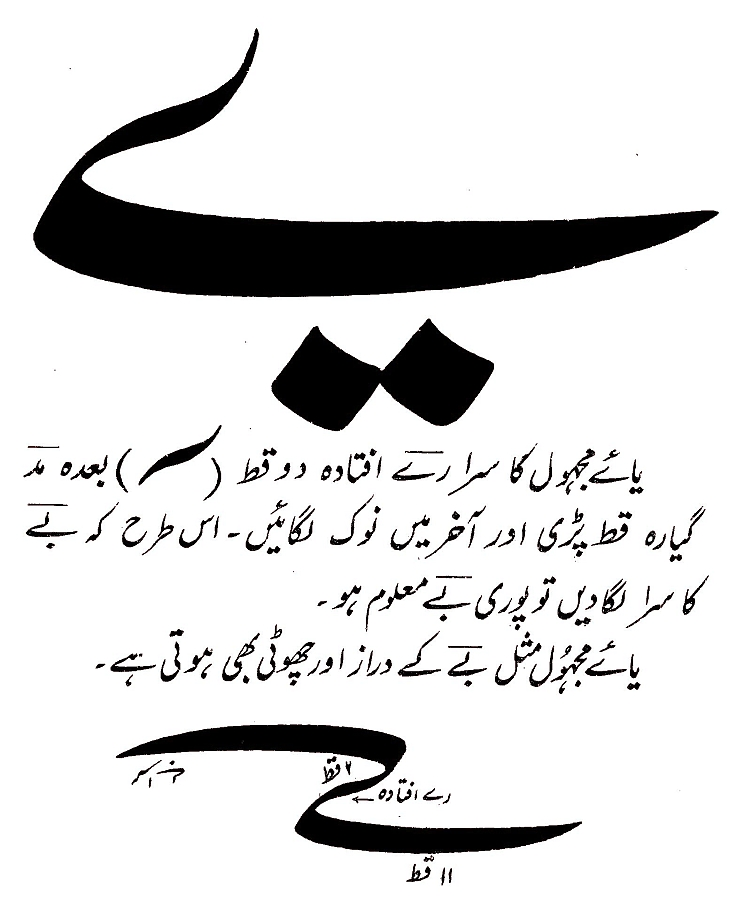 ے
یائے مجہول کا سرا رے افتادہ دو قط ( ) بعدہ مد
گیارہ قط پڑی اور آخر میں نوک لگائیں۔ اس طرح کہ بے
کا سرا لگا دیں تو پوری بے معلوم ہو۔
یائے مجہُول مثل بے کے دراز اور چھوٹی بھی ہوتی ہے۔
۲ قط
رے افتادہ
۱۱ قط